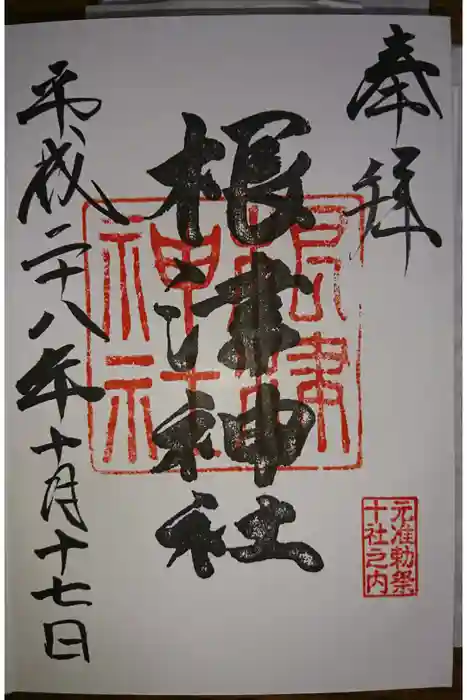 奉拝
根津神社
根津神社
元准勅祭
十社之内
平成二十八年十月十七日